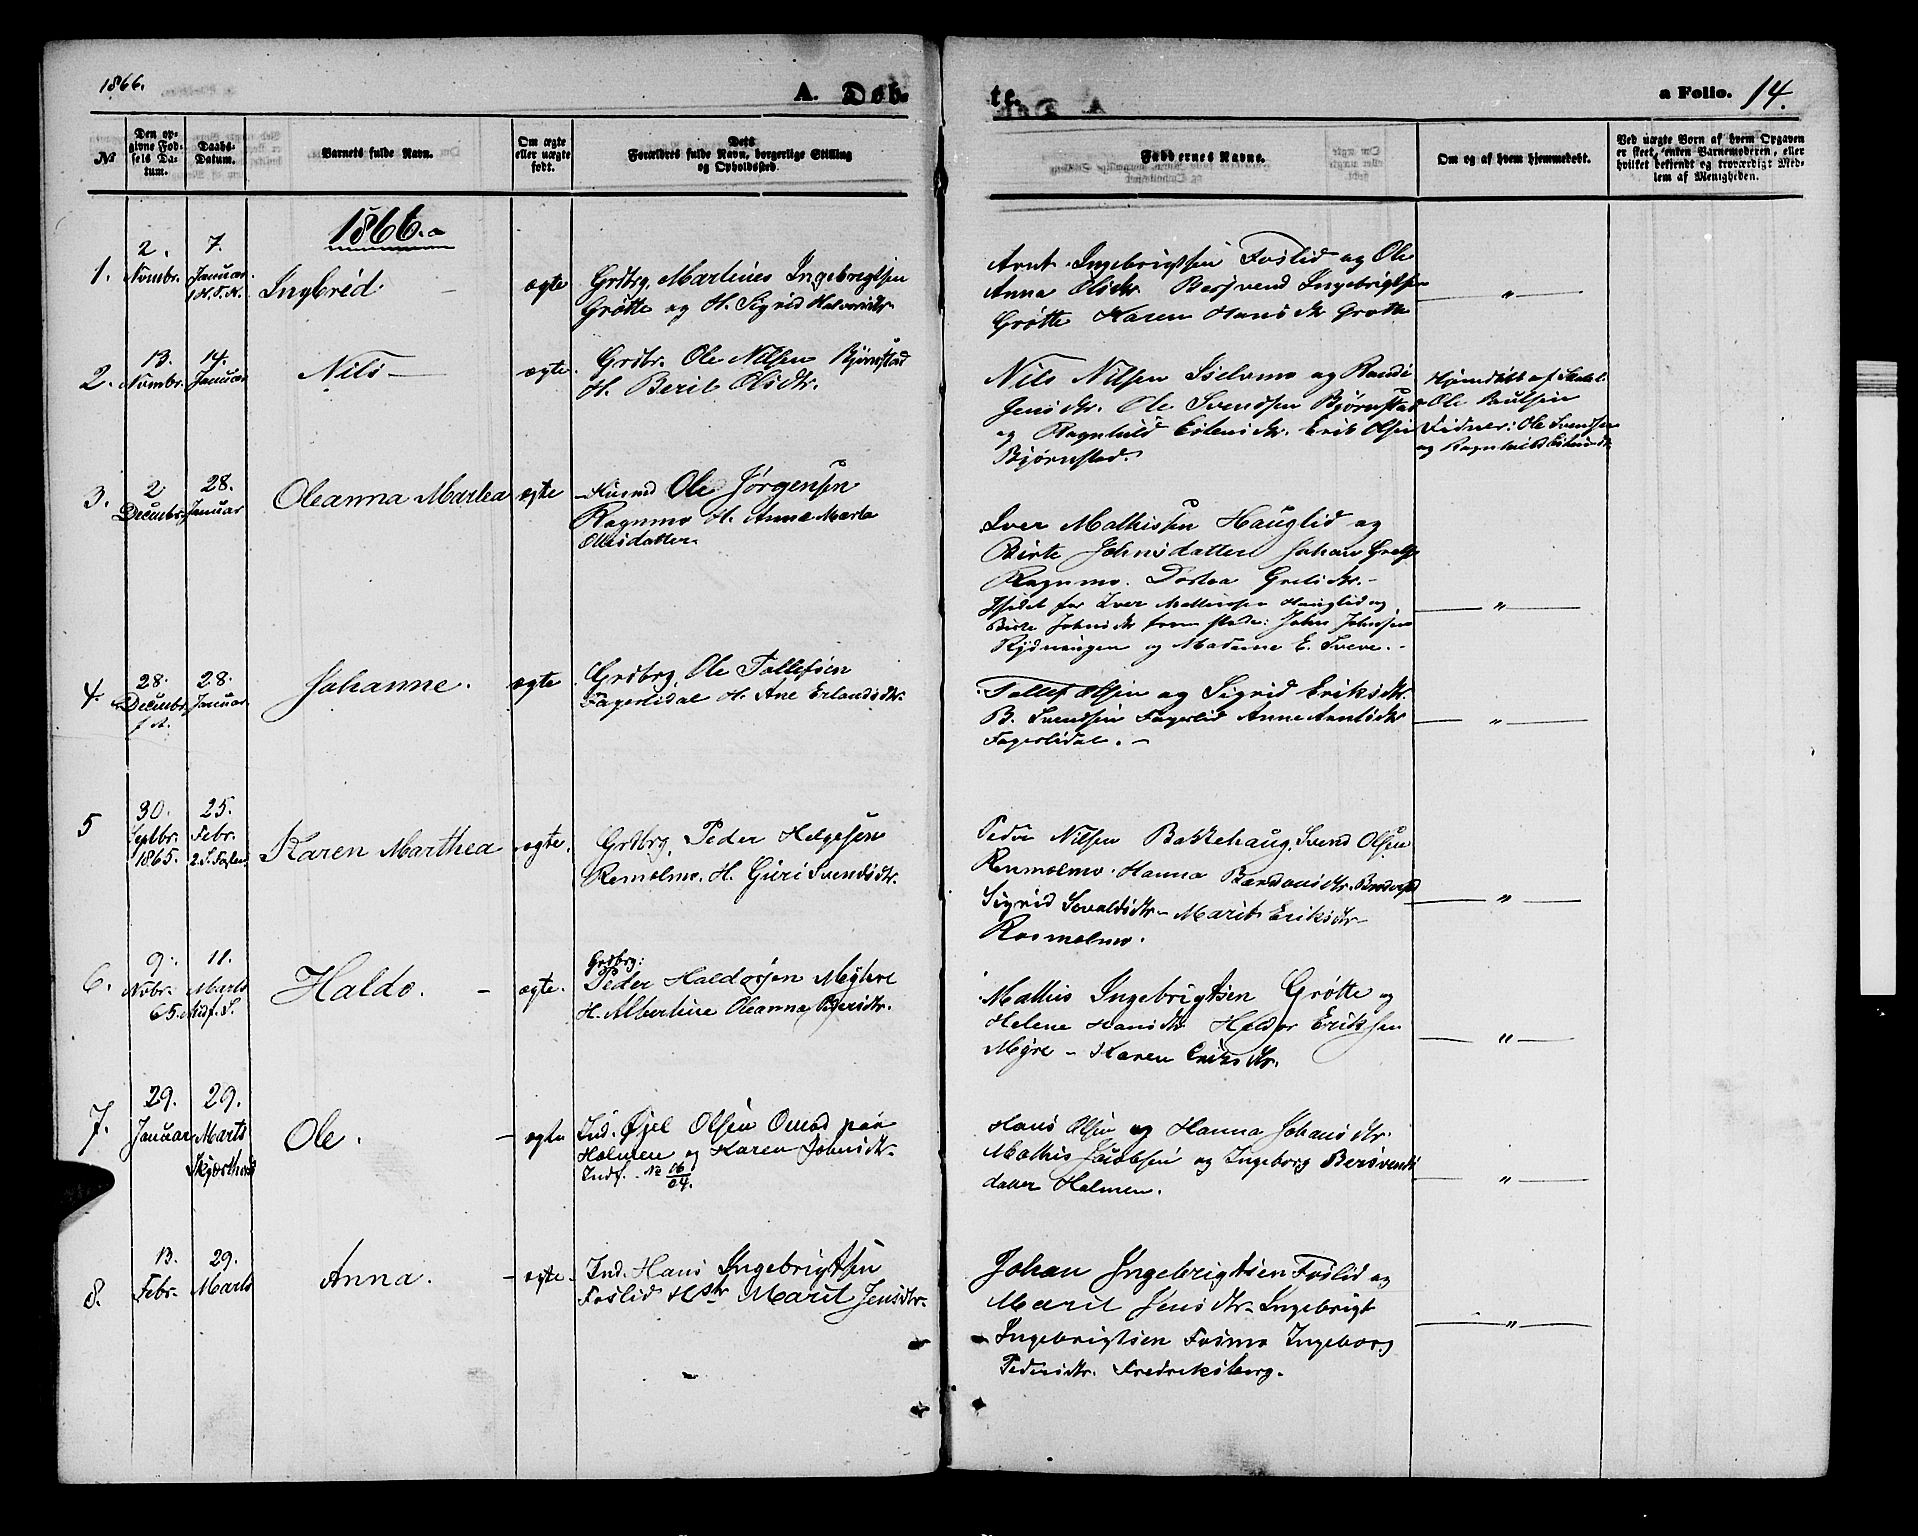 1866.
A. Døb-
te.
a Folio. 14.
№
Den op-
givne Fød-
sels Da-
tum.
Daabs-
Datum.
Barnets fulde Navn.
Om ægte
eller uægte
født.
Dets
Forældres fulde Navn, borgerlige Stilling
og Opholdssted.
Faddernes Navne.
Om og af hvem hjemmedøbt.
Ved uægte Born af hvem Opgaven
er skeet, enten Barnemoderen, eller
hvilket bekjendt og troværdigt Med-
lem af Menigheden.
1866.
1.
2.
Nvmbr.
7.
Januar
Ingbrid
ægte
Grdbrg. Martines Ingebregtsen
Grøtte og H. Sigrid Halvorsdtr.
Arnt Ingebrigtsen Foslid og Ole
Anna Olsdtr Bersvend Ingebrigtsen
Grøtte Karen Hansdtr Grøtte
"
2.
13.
Nvmbr.
14.
Januar
Nils
ægte.
Grdbr. Ole Nilsen Bjørnstad
H. Berit Olsdtr.
Nils Nilsen og Randi
Jensdtr. Ole Svendsen Bjørnstad
og Ragnhild Estensdtr. Erik Olsen
Bjørnstad.
Hjemdøbt af Skolel.
Ole Paulsen
Vidner: Ole Svendsen
og Ragnhild Estensdtr
3.
2
Decembr.
28.
Januar
Oleanna Martea
ægte
Husmd Ole Jørgensen
Ragnmo H. Anne Marta
Olesdatter
Iver Mathissen Hauglid og
Birte Johnsdatter Johan
Ragnmo. Dortea
Istedet for Iver Mathissen Hauglid og
Birte Johnsdtr frem stode: John Johnsen
Rydningen og Madame E. Sveve.
"
4.
28.
Decembr.
f. A.
28.
Januar
Johanne.
ægte
Grdbrg. Ole Tollefsen
Fagerlidal H. Ane Erlandsdtr.
Tollef Olsen og Sigrid Eriksdtr.
B. Svendsen Fagerlid Anne Arntsdtr
Fagerlidal.
"
5
30.
Septbr.
1865.
25.
Febr.
2. S. Fasten
Karen Marthea
ægte.
Grdbrg. Peder Helgesen
Remolmo. H. Guri Svendsdtr.
Peder Nilsen Bakkehaug, Svend Olsen
Remolmo. Hanna
Sigrid Marit Eriksdtr
"
6.
9.
Nvbr.
65.
11.
Marts
Midf. S.
Haldo.
ægte.
Grdbrg:
Peder Haldorsen Myhre
H. Albertine Oleanna
Mathis Ingebrigtsen Grøtte og
Helene Hansdtr Haldor Eriksen
Myre - Karen
"
7.
29.
Januar
29.
Marts
Skjærthors
Ole.
ægte
Ind. Olsen paa
Holmen og Karen Johnsdtr.
Indf. № 16/04.
Hans Olsen og Hanna Johansdtr.
Mathis Jacobsen og Ingeborg Bersvends
datter Holmen.
"
8.
13.
Febr.
29.
Marts
Anna.
ægte
Ind. Hans Ingebrigtsen
Foslid Hstr Marit Jensdtr.
Johan Ingebrigtsen Foslid og
Marit Jensdtr. Ingebrigt
Ingebrigtsen Fosmo Ingeborg
Pedersdtr. Fredriksberg.
"